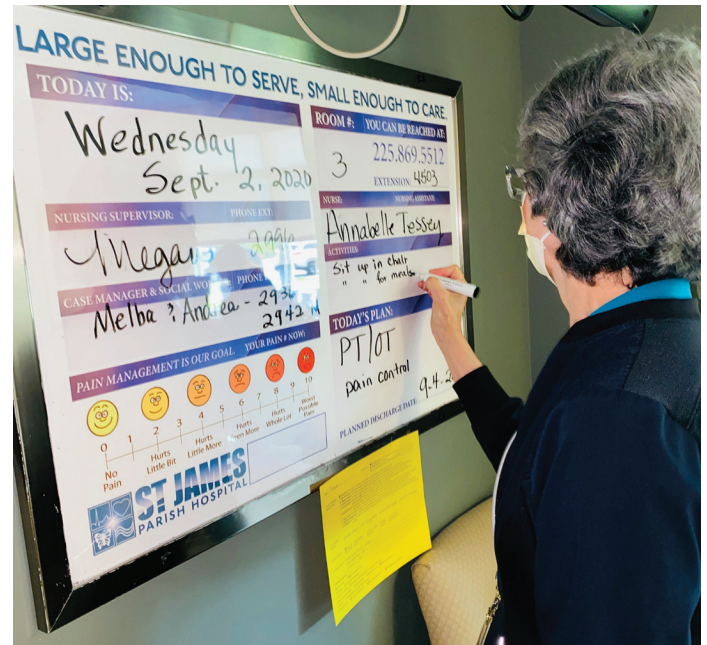 LARGE ENOUGH TO SERVE, SMALL ENOUGH TO CARE.
TODAY IS:
Wednesday
Sept. 2, 2020
NURSING SUPERVISOR: PHONE EXT:
Megan
CASE MANAGER & SOCIAL PHONE
Melba & Andrea - 293
2942
PAIN MANAGEMENT IS OUR GOAL YOUR PAIN # NOW:
0 1 2 3 4 5 6 7 8 9 10
No Pain
Hurts Little Bit
Hurts Little More
Hurts Even More
Hurts Whole Lot
Worst Possible Pain
ST JAMES
PARISH HOSPITAL
ROOM #: YOU CAN BE REACHED AT:
3 225.869.5512
EXTENSION: 4503
NURSE: NURSING ASSISTANT:
Annabelle Tessey
ACTIVITIES:
Sit up in chair
" " for meals
TODAY'S PLAN:
PT/OT
pain control
9.4.2
PLANNED DISCHARGE DATE: